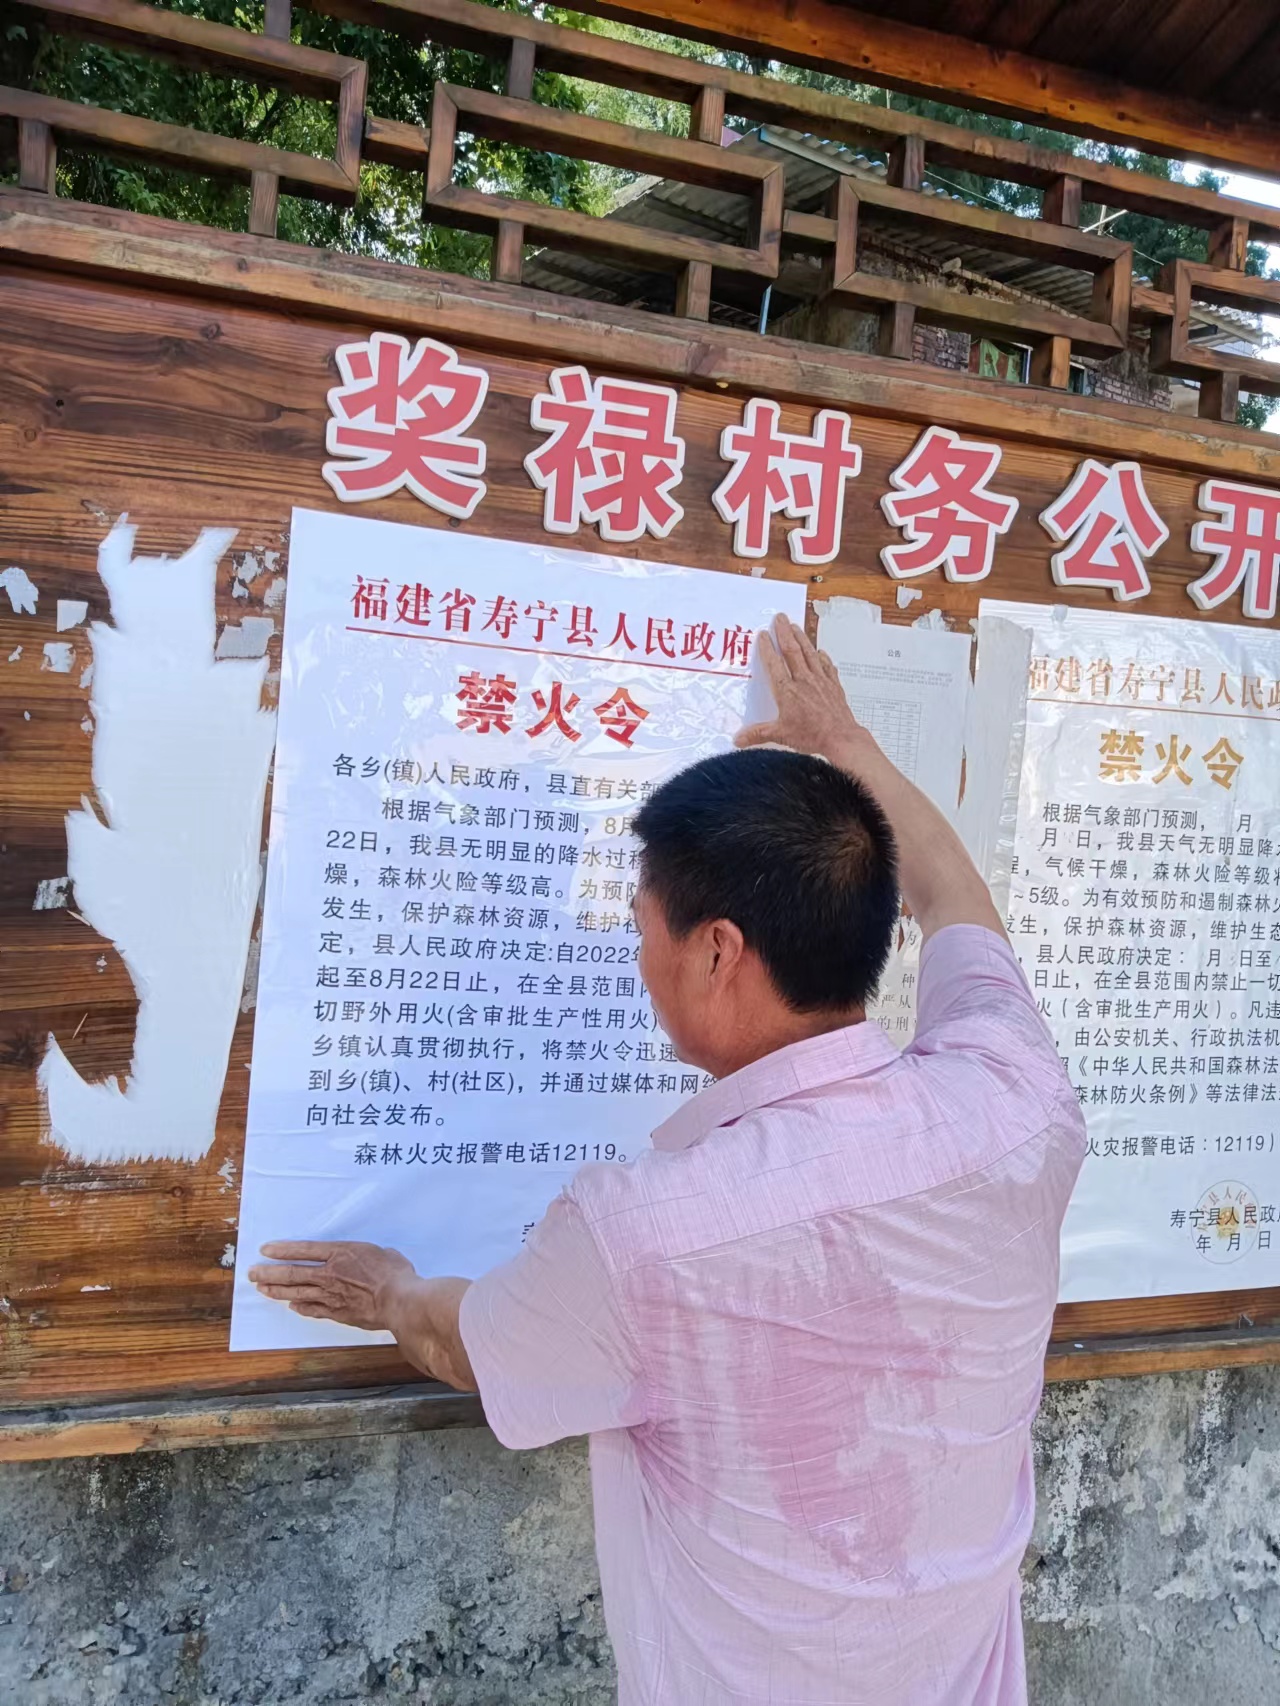 奖禄村务公开
福建省寿宁县人民政府
禁火令
各乡(镇)人民政府，县直有关部
根据气象部门预测，8月
22日，我县无明显的降水过程
燥，森林火险等级高。为预防
发生，保护森林资源，维护社
定，县人民政府决定:自2022年
起至8月22日止，在全县范围内
切野外用火(含审批生产性用火)
乡镇认真贯彻执行，将禁火令迅速
到乡(镇)、村(社区)，并通过媒体和网络
向社会发布。
森林火灾报警电话12119。
公告
福建省寿宁县人民政
禁火令
根据气象部门预测， 月
月 日，我县天气无明显降水
程，气候干燥，森林火险等级将
~5级。为有效预防和遏制森林火
发生，保护森林资源，维护生态
，县人民政府决定： 月 日至
日止，在全县范围内禁止一切
火（含审批生产用火）。凡违
，由公安机关、行政执法机
照《中华人民共和国森林法
森林防火条例》等法律法
火灾报警电话：12119）
寿宁县人民政府
年 月 日